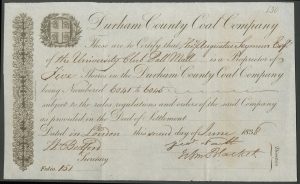 130
Durham County Coal Company
These are to Certify that Fitzroy Seymour Esqr
of the University Club Pall Mall is a Proprietor of
Five Shares in the Durham County Coal Company
being Numbered 6041 to 6045
subject to the rules, regulations and orders of the said Company
as provided in the Deed of Settlement.
Dated in London this second day of June 1838
Secretary
John Blackett
Directors
Entries 151